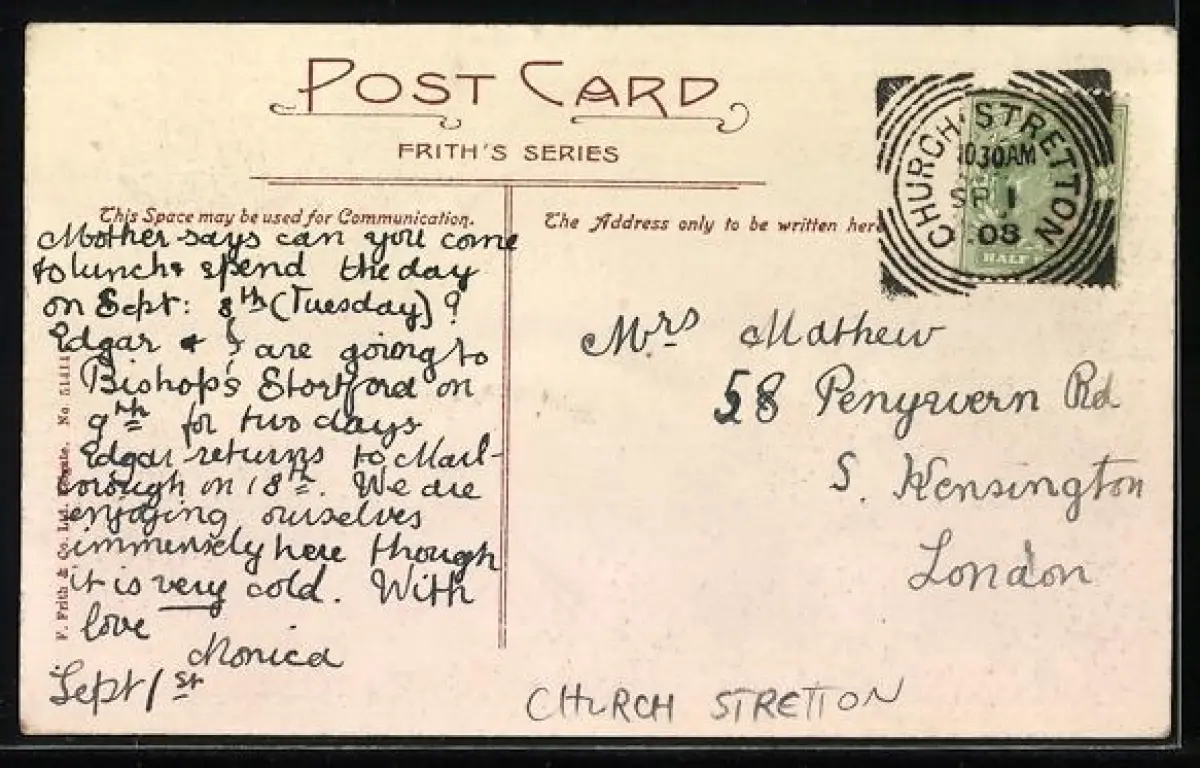 POST CARD
FRITH'S SERIES
This Space may be used for Communication.
The Address only to be written here
CHURCH STRETTON
10 30 AM
SP 1
08
HALF
Mother says can you come
to lunch & spend the day
on Sept: 8th (Tuesday) ?
Edgar & I are going to
Bishop's Stortford on
9th for two days
Edgar returns to Marl-
borough on 18th. We are
enjoying ourselves
immensely here though
it is very cold. With
love
Monica
Sept 1st
Mrs Mathew
58 Penywern Rd
S. Kensington
London
CHURCH STRETTON
F. Frith & Co. Ltd. Reigate. No. 51411